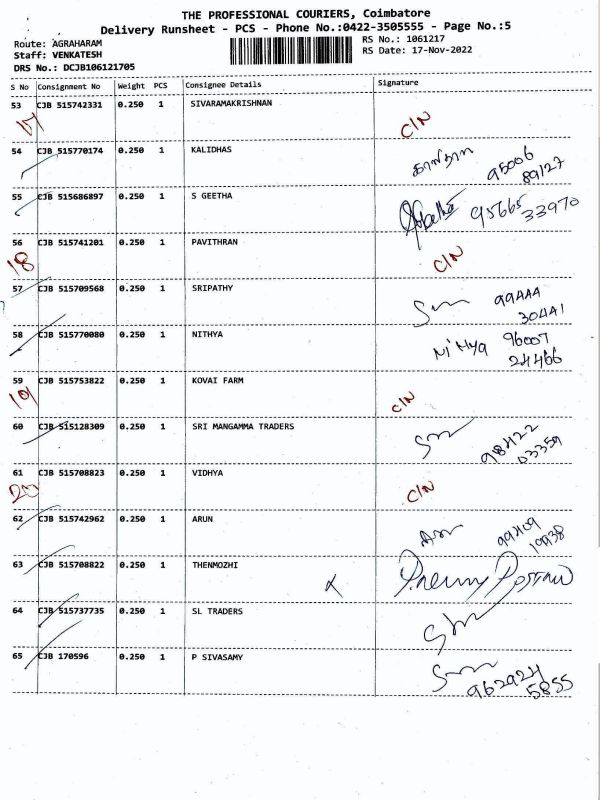 THE PROFESSIONAL COURIERS, Coimbatore
Delivery Runsheet - PCS - Phone No.:0422-3505555 - Page No.:5
Route: AGRAHARAM
RS No.: 1061217
Staff: VENKATESH
RS Date: 17-Nov-2022
DRS No.: DCJB106121705
S No Consignment No Weight PCS Consignee Details Signature
53 CJB 515742331 0.250 1 SIVARAMAKRISHNAN
17 C/N
54 CJB 515770174 0.250 1 KALIDHAS
காளிதாஸ் 95006
89127
55 CJB 515686897 0.250 1 S GEETHA
95665
33970
56 CJB 515741201 0.250 1 PAVITHRAN
18 C/N
57 CJB 515709568 0.250 1 SRIPATHY
99444
30441
58 CJB 515770080 0.250 1 NITHYA
Nithya 96007
24466
59 CJB 515753822 0.250 1 KOVAI FARM
19 C/N
60 CJB 515128309 0.250 1 SRI MANGAMMA TRADERS
98422
03359
61 CJB 515708823 0.250 1 VIDHYA
20 C/N
62 CJB 515742962 0.250 1 ARUN
63 CJB 515708822 0.250 1 THENMOZHI
64 CJB 515737735 0.250 1 SL TRADERS
65 CJB 170596 0.250 1 P SIVASAMY
962924
5855